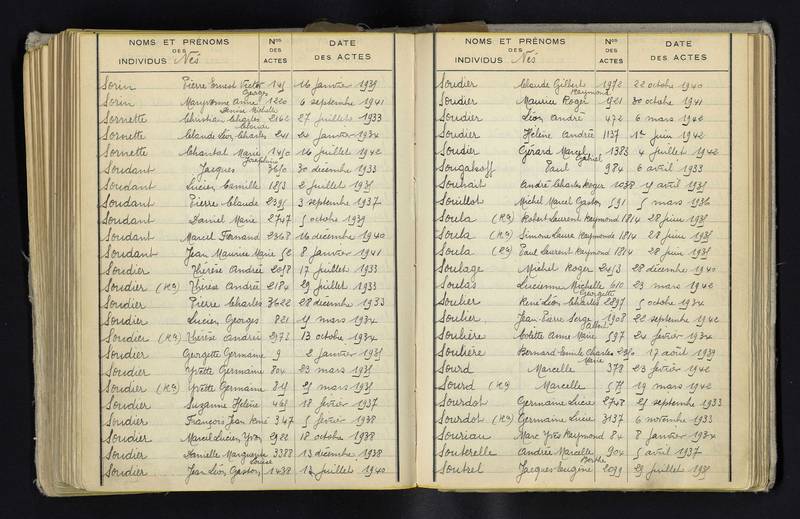 NOMS ET PRÉNOMS
DES
INDIVIDUS Nés
Nos
DES
ACTES
DATE
DES ACTES
Sorin Pierre Ernest Victor Georges 16 janvier
Sorin Maryvonne Anne Denise Michelle 1220 6 septembre 1941
Sornette Christian Charles 2162 27 juillet 1933
Sornette Claude Léon Charles 241 24 janvier 1934
Sornette Chantal Marie Josephine 1450 16 juillet 1942
Soudant Jacques 3650 30 décembre 1933
Soudant Lucien Camille 1853 2 juillet 1935
Soudant Pierre Claude 2395 3 septembre 1937
Soudant Daniel Marie 2747 5 octobre 1939
Soudant Marcel Fernand 2368 16 décembre 1940
Soudant Jean Maurice Marie 52 8 janvier 1941
Soudier Thérèse Andrée 2058 17 juillet 1933
Soudier (RQ) Thérèse Andrée 2184 29 juillet 1933
Soudier Pierre Charles 3622 28 décembre 1933
Soudier Lucien Georges 821 mars 1934
Soudier (RQ) Thérèse Andrée 2973 13 octobre 1934
Soudier Georgette Germaine 9 2 janvier 1935
Soudier Yvette Germaine 804 23 mars 1935
Soudier (RQ) Yvette Germaine mars 1935
Soudier Suzanne Hélène 465 18 février 1937
Soudier François Jean René 347 5 février 1938
Soudier Marcel Lucien Yvon 2922 18 octobre 1938
Soudier Danielle Marguerite Louise 3388 13 décembre 1938
Soudier Jean Léon Gaston 1438 12 juillet 1940
NOMS ET PRÉNOMS
DES
INDIVIDUS Nés
Nos
DES
ACTES
DATE
DES ACTES
Soudier Claude Gilbert 1972 22 octobre 1940
Soudier Maurice Roger Raymond 1921 30 octobre 1941
Soudier Léon André 472 6 mars 1942
Soudier Hélène Andrée 1137 1er juin 1942
Soudier Gérard Marcel 1383 4 juillet 1942
Sougatsoff Paul Gabriel 984 6 avril 1933
Souhait André Charles Roger 1038 avril 1935
Souillot Michel Marcel Gaston 591 5 mars 1936
Soula (RQ) Robert Laurent Raymond 1814 28 juin 1935
Soula (RQ) Simone Laure Raymonde 1814 28 juin 1935
Soula (RQ) Paul Laurent Raymond 1814 28 juin 1935
Soulage Michel Roger 2453 28 décembre 1940
Soulas Lucienne Michelle Georgette 610 23 mars 1942
Soulier René Léon Charles 2897 5 octobre 1934
Soulier Jean Pierre Serge Albert 1908 22 septembre 1942
Soulière Colette Anne Marie 597 24 février 1934
Soulière Bernard Emile Charles 2350 17 août 1939
Sourd Marcelle Marie 378 23 février 1942
Sourd (RQ) Marcelle mars 1942
Sourdot Germaine Lucie 2748 25 septembre 1933
Sourdot (RQ) Germaine Lucie 3137 6 novembre 1933
Souriau Marc Yves Raymond 84 8 janvier 1934
Souterelle Andrée Marcelle Berthe 904 5 avril 1937
Soutrel Jacques Eugène 2099 29 juillet